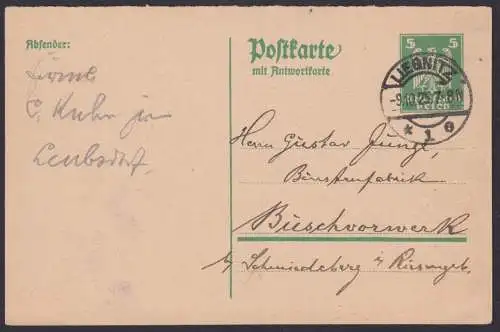 Absender:
Firma
C. Kuhn jr
Leubsdorf.
Postkarte
mit Antwortkarte
5 5
LIEGNITZ
-9.10.25.7-8N
* 1 e
Herrn Gustav Jungf
Bürstenfabrik
Buschvorwerk
b/ Schmiedeberg i/ Riesengeb.